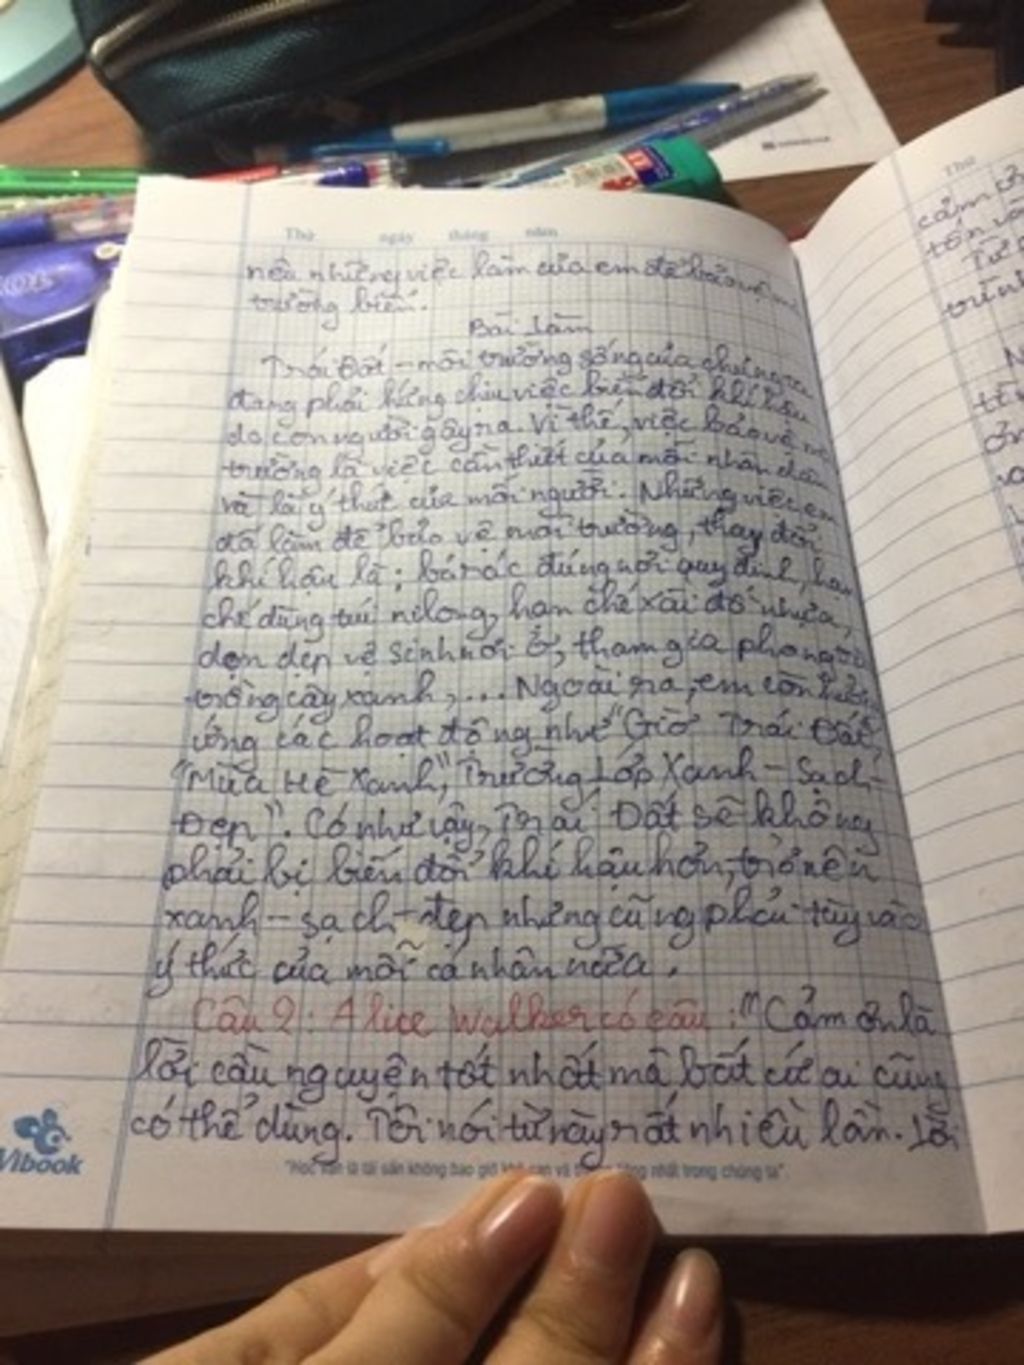 Thứ ngày tháng năm
nêu những việc làm của em để bảo vệ môi
trường biển.
Bài làm
Trái Đất - môi trường sống của chúng ta
đang phải hứng chịu việc biến đổi khí hậu
do con người gây ra. Vì thế, việc bảo vệ môi
trường là việc cần thiết của mỗi nhân dân
và là ý thức của mỗi người. Những việc em
đã làm để bảo vệ môi trường, thay đổi
khí hậu là: bỏ rác đúng nơi quy định, hạn
chế dùng túi nilong, hạn chế xài đồ nhựa,
dọn dẹp vệ sinh nơi ở, tham gia phong trào
trồng cây xanh,... Ngoài ra, em còn hưởng
ứng các hoạt động như "Giờ Trái Đất",
"Mùa Hè Xanh", Trường Lớp Xanh - Sạch -
Đẹp". Có như vậy, Trái Đất sẽ không
phải bị biến đổi khí hậu hơn, trở nên
xanh - sạch - đẹp nhưng cũng phải tùy vào
ý thức của mỗi cá nhân nữa.
Câu 2: Alice Walker có câu: "Cảm ơn là
lời cầu nguyện tốt nhất mà bất cứ ai cũng
có thể dùng. Tôi nói từ này rất nhiều lần. Lời
Vibook
"Học vấn là tài sản không bao giờ nhất trong chúng ta".
Thứ